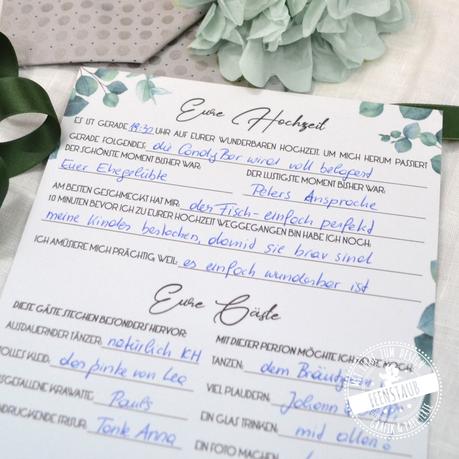 Eure Hochzeit
ES IST GERADE 19:32 UHR AUF EURER WUNDERBAREN HOCHZEIT. UM MICH HERUM PASSIERT
GERADE FOLGENDES: die CandyBar wird voll belagert
DER SCHÖNSTE MOMENT BISHER WAR:
Euer Ehegelübte
DER LUSTIGSTE MOMENT BISHER WAR:
Peters Ansprache
AM BESTEN GESCHMECKT HAT MIR: der Fisch - einfach perfekt
10 MINUTEN BEVOR ICH ZU EURER HOCHZEIT WEGGEGANGEN BIN HABE ICH NOCH:
meine Kinder bestochen, damit sie brav sind
ICH AMÜSIERE MICH PRÄCHTIG, WEIL: es einfach wunderbar ist
Eure Gäste
DIESE GÄSTE STECHEN BESONDERS HERVOR:
AUSDAUERNDER TÄNZER: natürlich KH
TOLLES KLEID: das pinke von Lea
AUSGEFALLENE KRAWATTE: Pauls
Tante Anna
MIT DIESER PERSON MÖCHTE ICH
TANZEN: dem Bräutigam
VIEL PLAUDERN: Johann
EIN GLAS TRINKEN: mit allen
EIN FOTO MACHEN:
FEINSTAUB